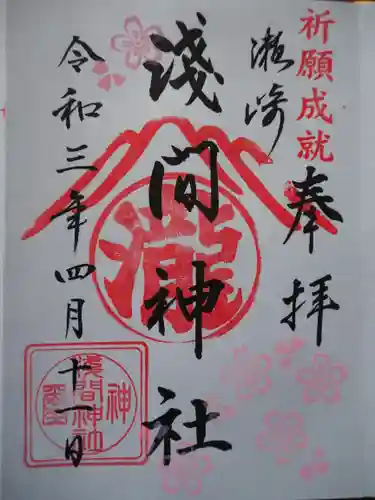 祈願成就
奉拝
瀬崎
淺間神社
瀧
令和三年四月十一日
淺間神社
神